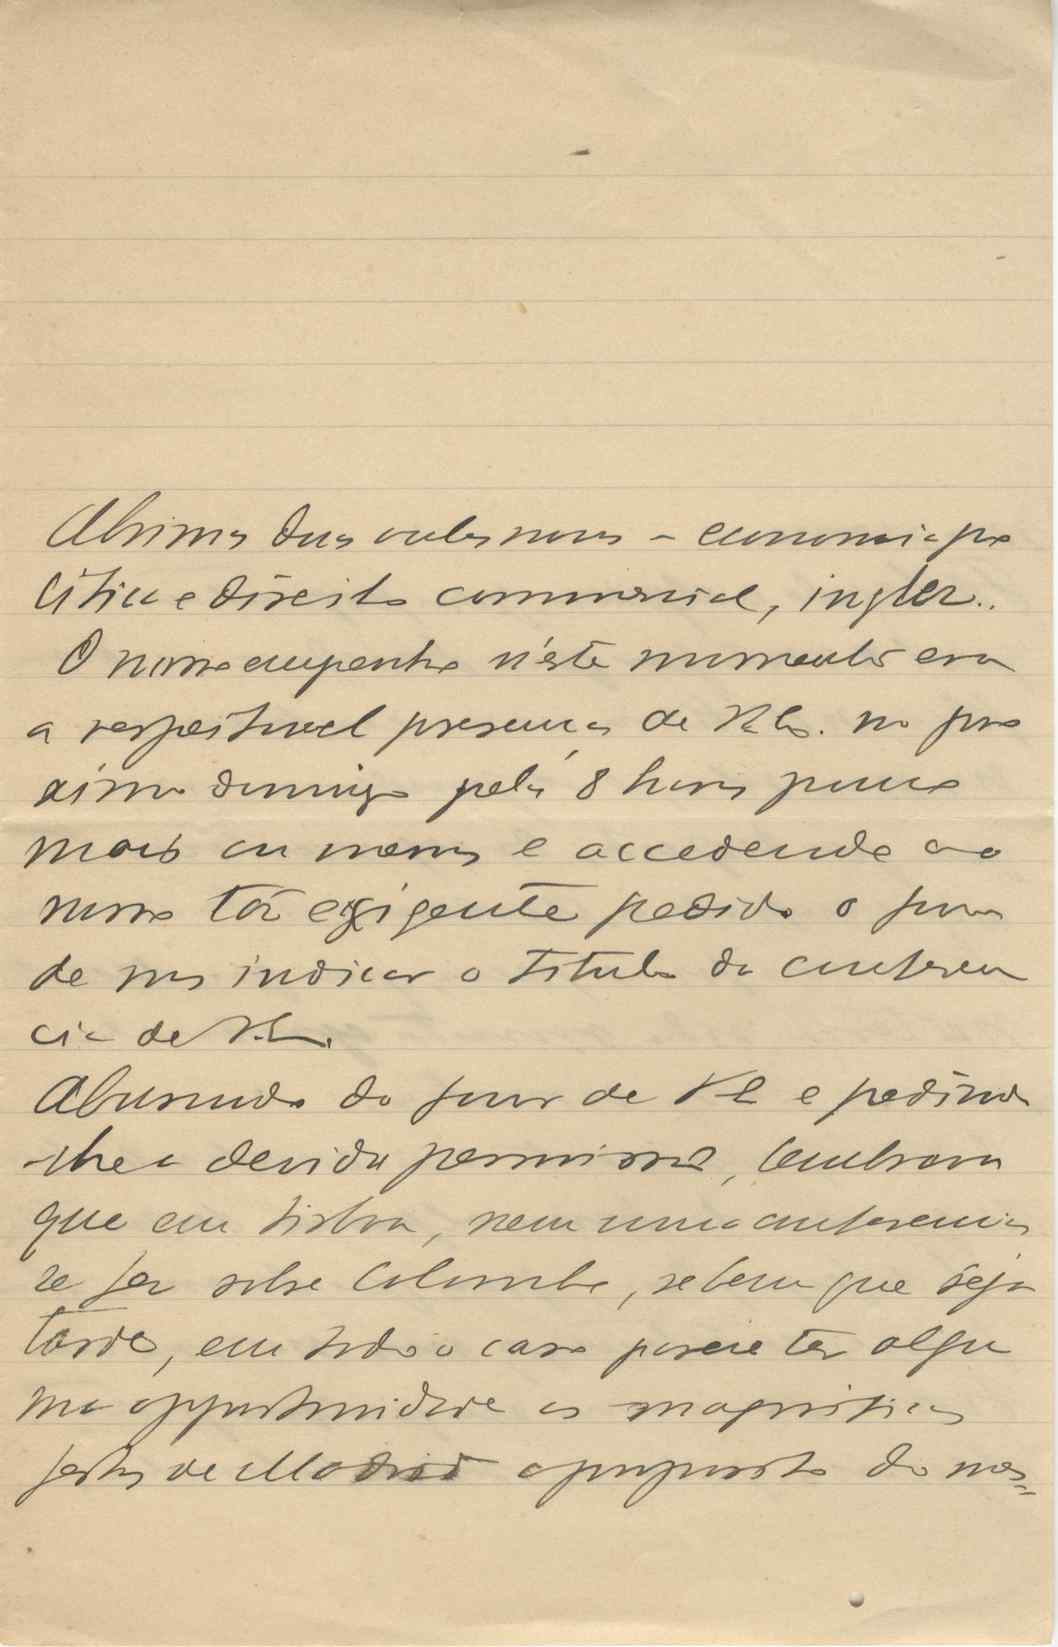 Abrimos duas aulas novas – economia po
litica e direito commercial, inglez..
O nosso empenho n'este momento era
a respeitavel presença de V. Ex. no pro
ximo domingo pelas 8 horas pouco
mais ou menos e accedendo ao
nosso tão exigente pedido o favor
de nos indicar o titulo da conferen
cia de V. E.
Abusando do favor de V E e pedindo
-lhe a devida permissão, lembrava
que em Lisboa, nem uma conferencia
se fez sobre Colombo, se bem que seja
tarde, em todo o caso parece ter algu
ma opportunidade as magnificas
festas de Madrid a proposito do nos=